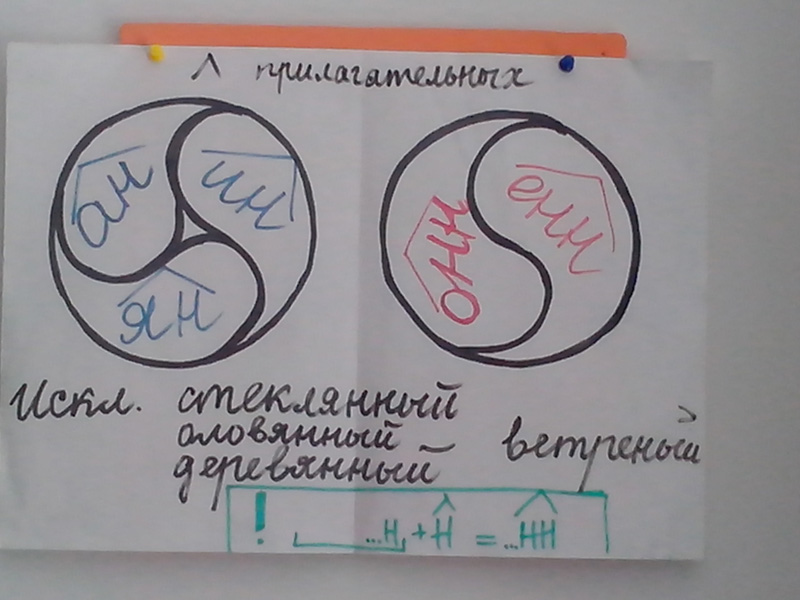 ^ прилагательных
ан ин
ян
онн енн
Искл. стеклянный
оловянный
деревянный
ветреный
! ...н + н = ...нн